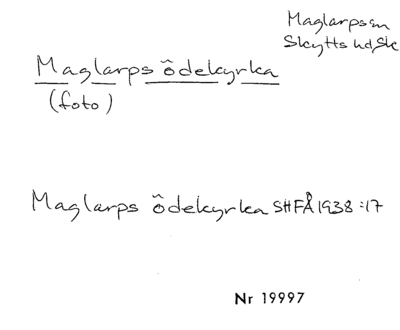 Maglarps sn
Skytts hd, Sk
Maglarps ödekyrka
(foto)
Maglarps ödekyrka SHFÅ 1938:17
Nr 19997